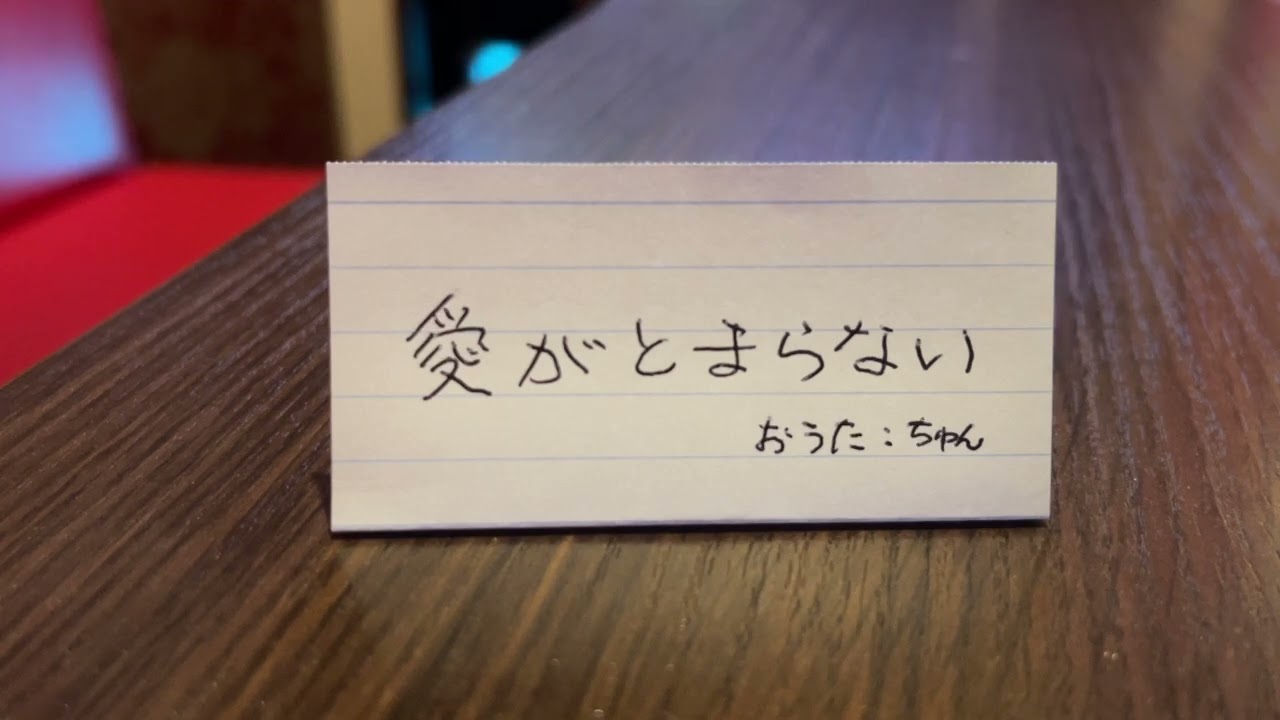 愛がとまらない
おうた：ちゅん